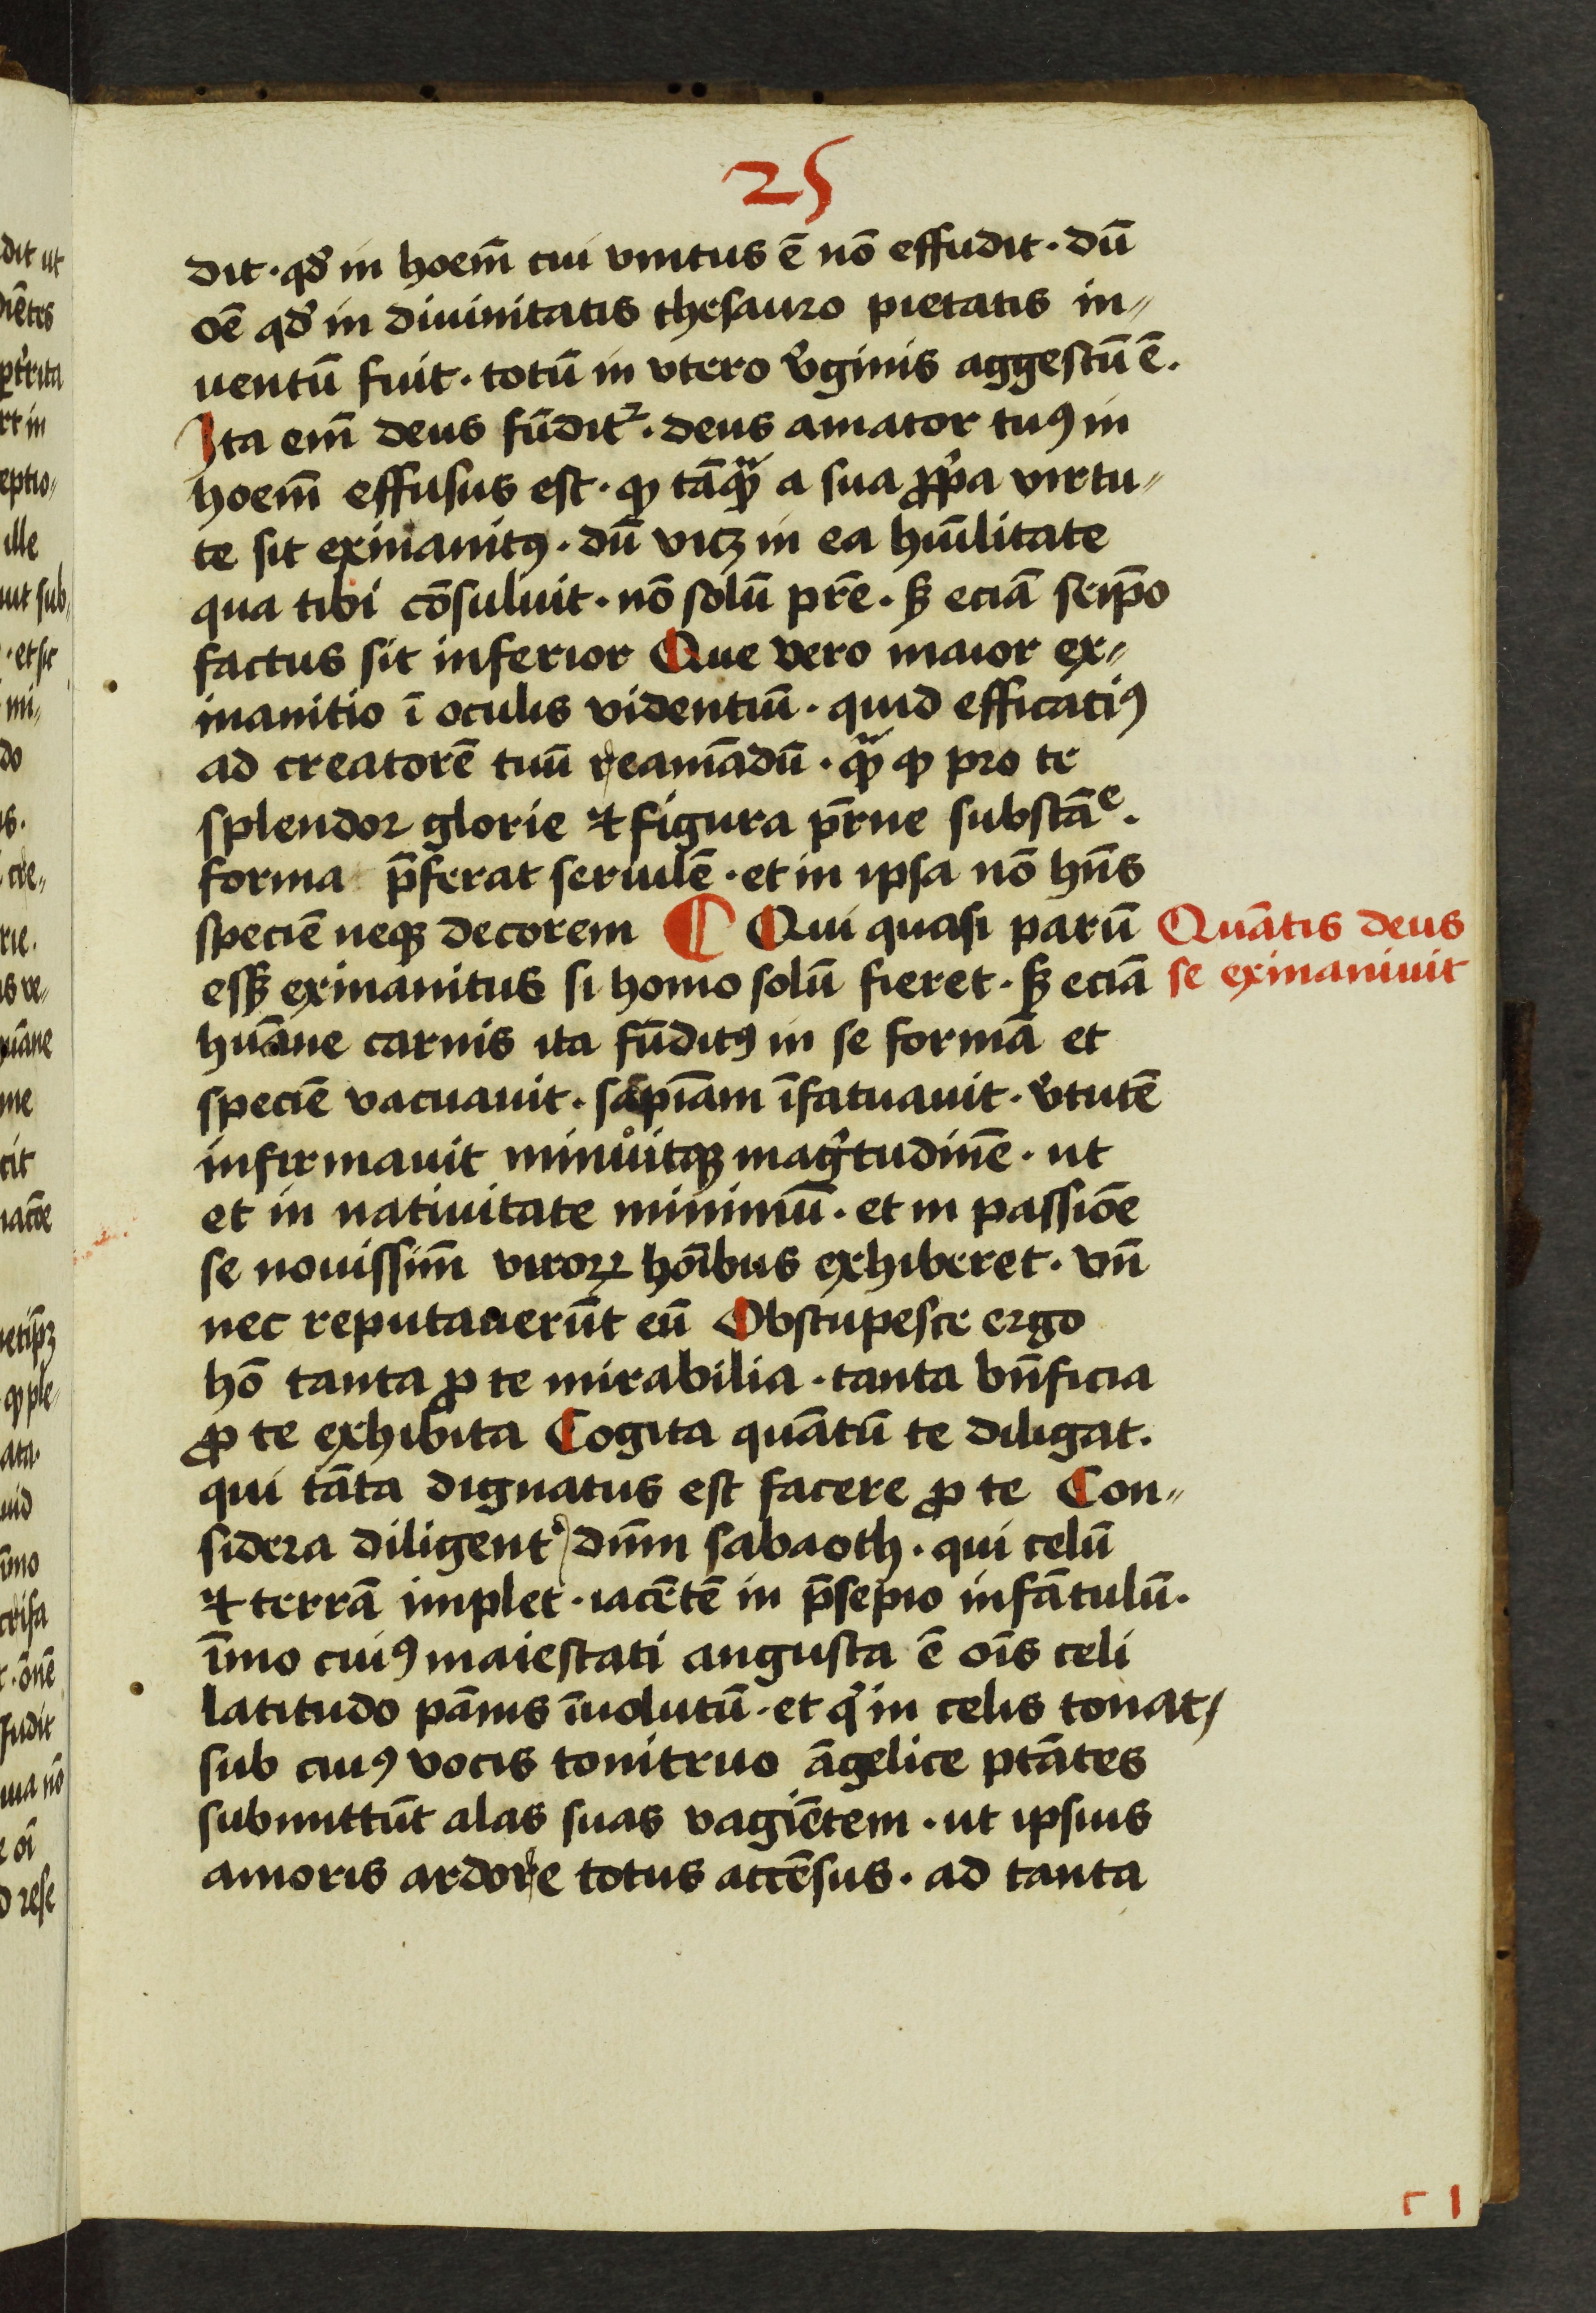 25
dit · qd̕ in hoem̄ cui vnitus ē nō effudit · dū
oē qd̕ in diuinitatis thesauro pietatis in„
uentū fuit · totū in vtero v̕ginis aggestū ē.
Ita em̄ deus fūditᷣ · deus amator tuꝯ in
hoem̄ effusus est · ꝙ tāꝙᷓ a sua ꝓp̕a virtu„
te sit exinanitꝯ · dū vicꝫ in ea hūilitate
qua tibi cōsuluit · nō solū pr̄e · sꝫ eciā seip̄o
factus sit inferior Que vero maior ex„
inanitio ī oculis videntiū · quid efficatiꝯ
ad creatorē tuū reamādū · ꝙᷓ ꝙ pro te
splendor glorie ⁊ figura pr̄ne substāͤ.
forma p̄ferat seruilē · et in ipsa nō hn̄s
speciē neqꝫ decorem ¶ Qui quasi parū
essꝫ exinanitus si homo solū fieret · sꝫ eciā
Quātis deus
se exinaniuit
huāne carnis ita fūditꝯ in se formā et
speciē vacuauit · sapiām īfatuauit · v̕tutē
infirmauit minuitqꝫ mag̕tudinē · ut
et in natiuitate minimū · et in passiōe
se nouissim̄ viroꝝ hōibus exhiberet · vn̄
nec reputauerūt eū Obstupesce ergo
hō tanta ꝓ te mirabilia · tanta bn̄ficia
ꝓ te exhibita Cogita quātū te diligat.
qui tāta dignatus est facere ꝓ te Con„
sidera diligent̕ dn̄m sabaoth · qui celū
⁊ terrā implet · iacētē in p̄sepio infātulū.
īmo cuiꝯ maiestati angusta ē oīs celi
latitudo pānis īuolutū · et qͥ in celis tonat /
sub cuiꝯ vocis tonitruo āgelice ptātes
submittūt alas suas vagiētem · ut ipsius
amoris ardore totus accēsus · ad tanta